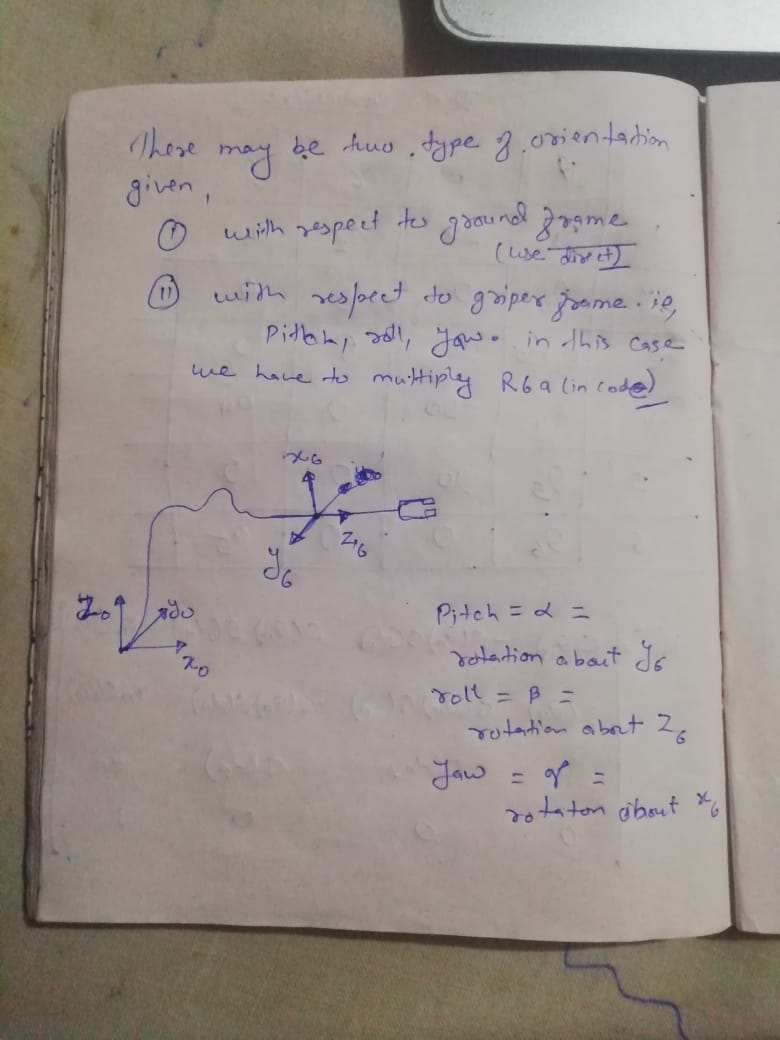 There may be two type of orientation
given,
(i) with respect to ground frame
(use direct)
(ii) with respect to griper frame. ie,
Pitch, roll, yaw. in this case
we have to multiply R6a (in code)
x6
y6
z6
z0
y0
x0
Pitch = α =
rotation about y6
roll = β =
rotation about z6
Yaw = γ =
rotaton about x6